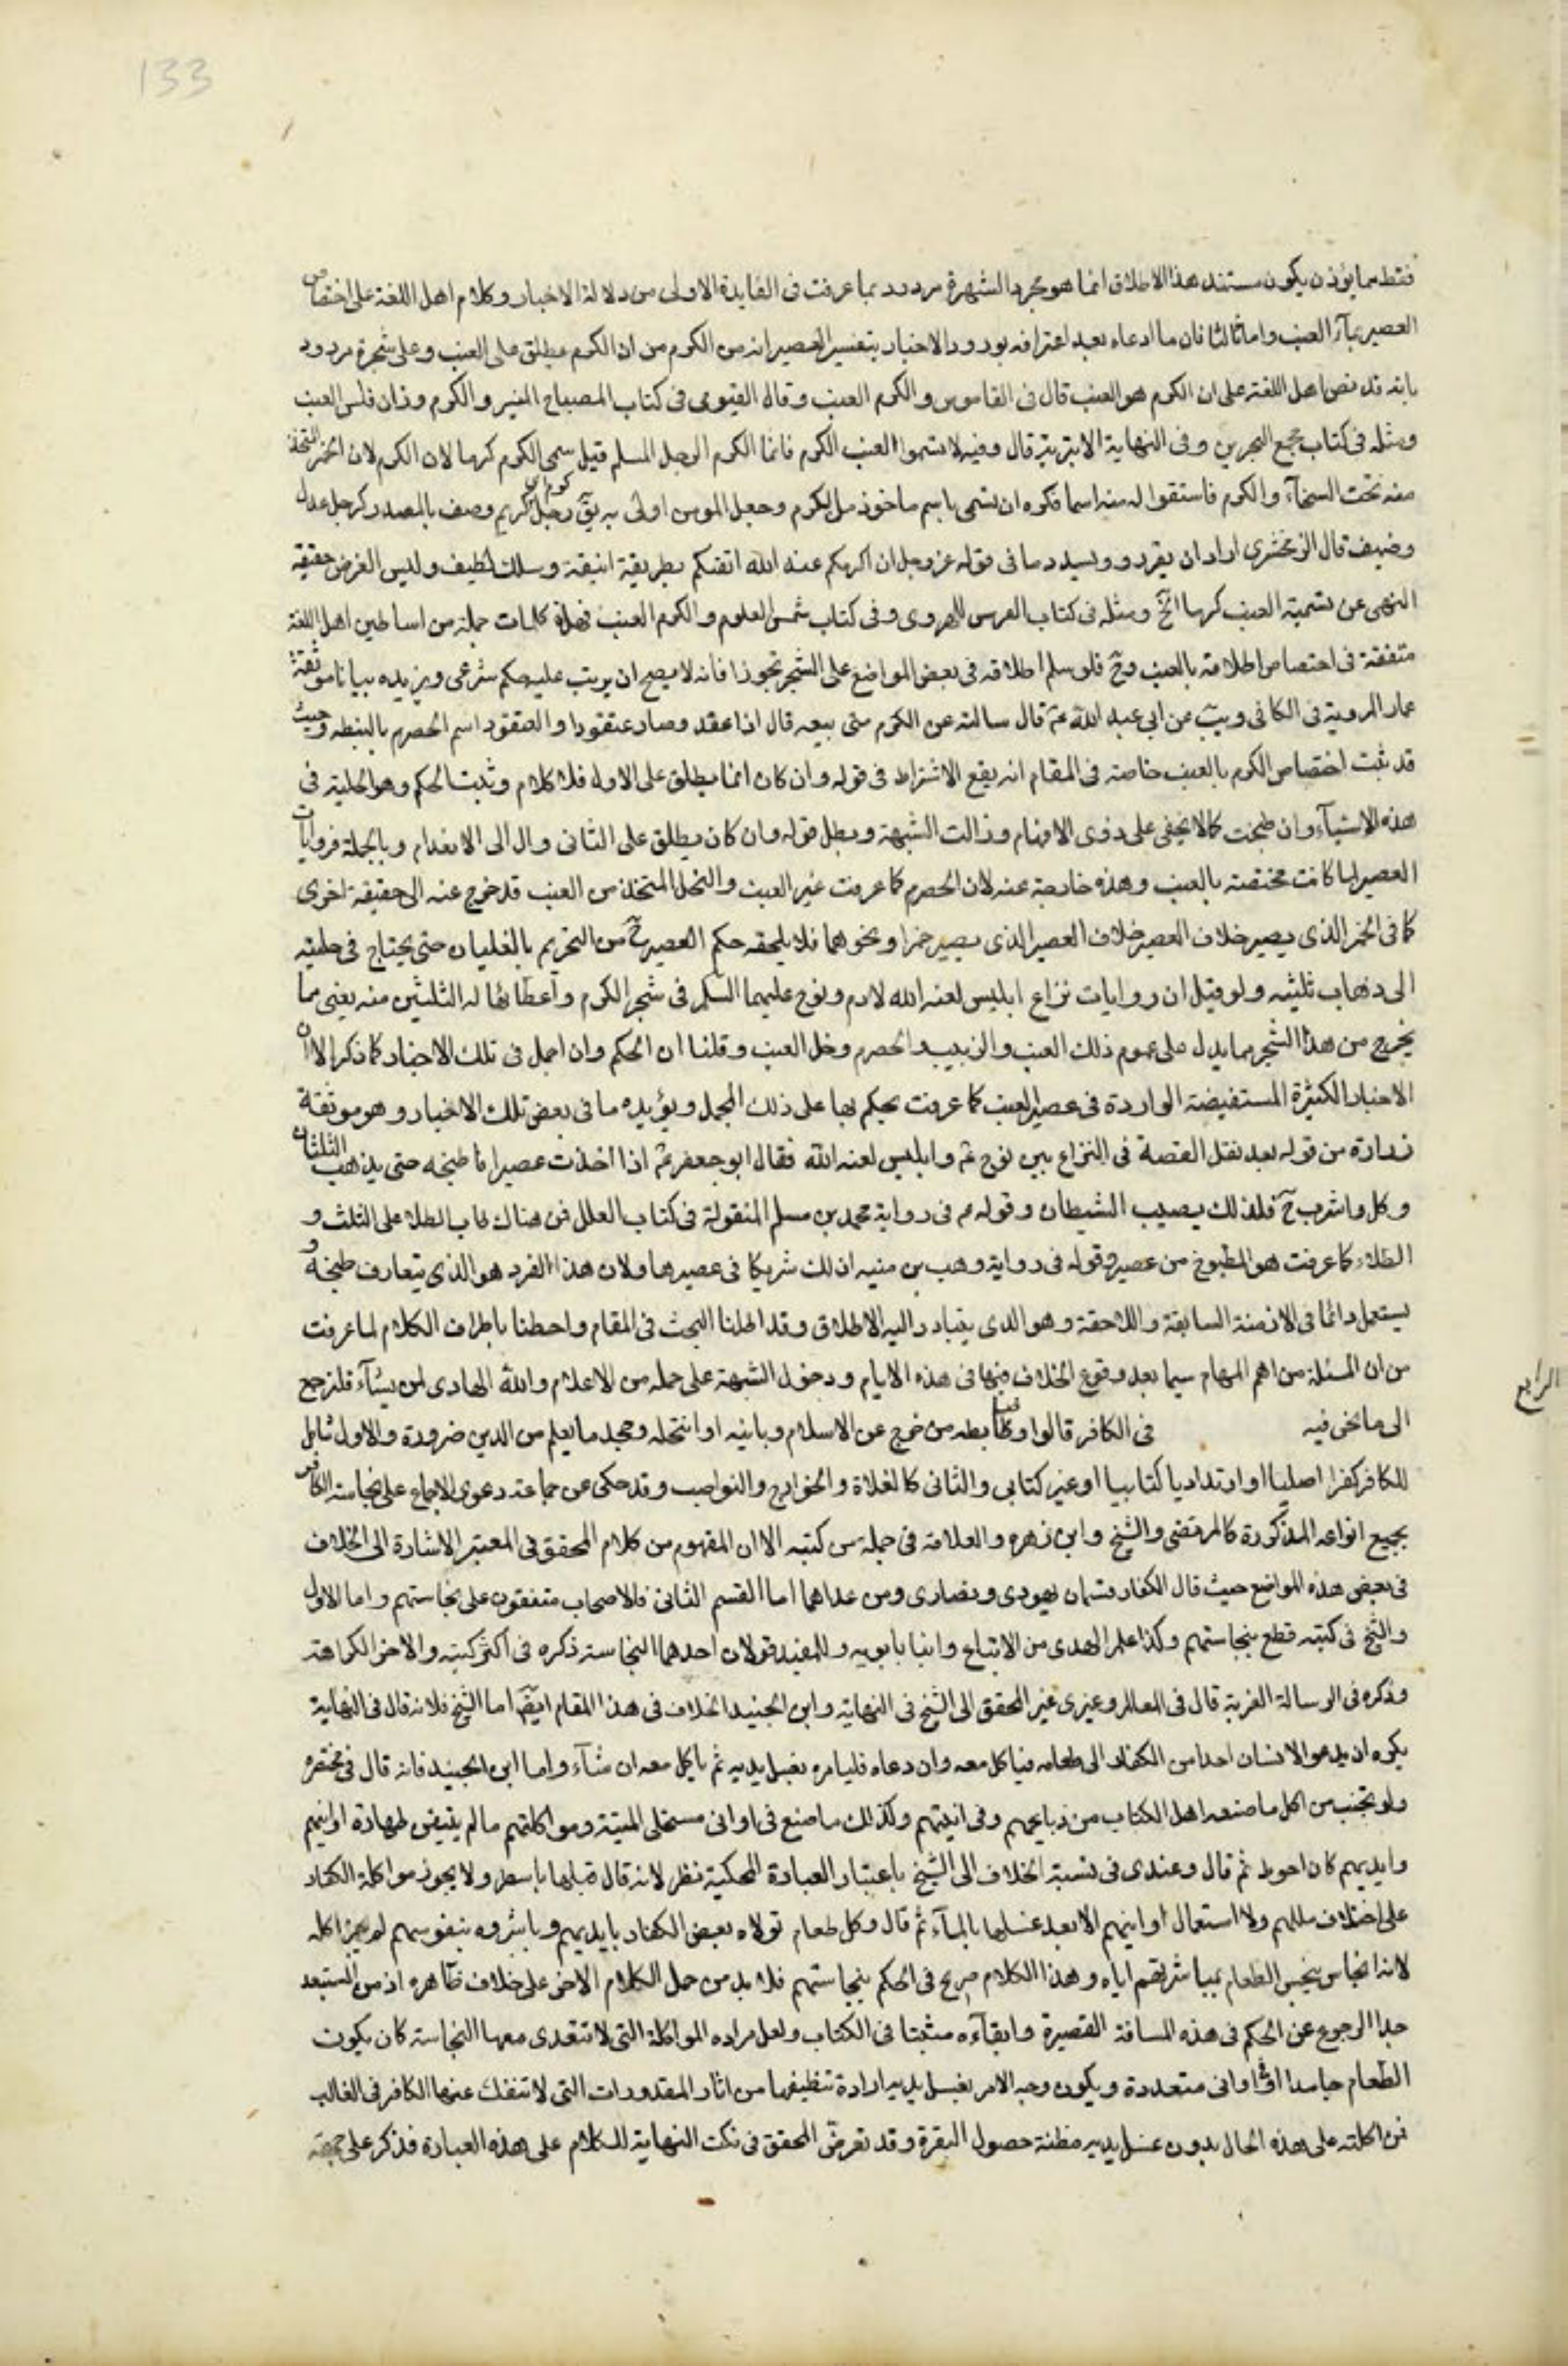 133
فقط مما يؤذن يكون مستند هذا الاطلاق انما هو مجرد الشهرة مردود بما عرفت فى الفايدة الاولى من دلالة الاخبار وكلام اهل اللغة على اختصاص
العصير بمآء العنب واما ثالثا فان ما ادعاه بعد اعترافه بورود الاخبار بتفسير العصير انه من الكرم من ان الكرم يطلق على العنب وعلى شجرة مردود
بانه قد نص اهل اللغة على ان الكرم هو العنب قال فى القاموس والكرم العنب وقال الفيومى فى كتاب المصباح المنير والكرم وزان فلس العنب
ومثله فى كتاب مجمع البحرين وفى النهاية الاثيرية قال وفيه لا تسموا العنب الكرم فانما الكرم الرجل المسلم قيل سمى الكرم كرما لان الكرم لان الخمر المتخذ
منه تحث السخآء والكرم فاستقوا له منه اسما فكره ان يسمى باسم ماخوذ من الكرم وجعل المومن اولى به يقٓ رجل كرم اى كريم وصف بالمصدر كرجل عدل
وضيف قال الزمخشرى اراد ان يقرر ويسدد ما فى قوله عز وجل ان اكرمكم عند الله اتقيكم بطريقة انيقة ومسلك لطيف وليس الغرض حقيقة
النهى عن تسمية العنب كرما الخٓ ومثله فى كتاب الغريبين للهروى وفى كتاب شمس العلوم والكرم العنب فهذه كلمات جملة من اساطين اهل اللغة
متفقة فى اختصاص اطلاقه بالعنب وحٓ فلو سلم اطلاقه فى بعض المواضع على الشجر تجوزا فانه لا يصح ان يرتب عليه حكم شرعى ويزيده بيانا موثقة
عمار المروية فى الكافى ويب عن ابى عبد الله عم قال سالته عن الكرم متى يبيعه قال اذا عقد وصار عنقودا والعنقود اسم الحصرم بالنبطيه وحيث
قد ثبت اختصاص الكرم بالعنب خاصة فى المقام انه يقع الاشتراط فى قوله وان كان انما يطلق على الاول فلا كلام وثبت الحكم وهو الحلية فى
هذه الاشيآء وان طبخت كما لا يخفى على ذوى الافهام وزالت الشبهة وبطل قوله وان كان يطلق على الثانى وال الى الانعدام وبالجملة فروايات
العصير لما كانت مختصة بالعنب وهذه خارجة عنه لان الحصرم كما عرفت غير العنب والخل المتخذ من العنب قد خرج عنه الى حقيقة اخرى
كما فى الخمر الذى يصير خلاف العصير خلاف العصير الذى يصير خمرا ونحوهما فلا يلحقه حكم العصير حٓ من التحريم بالغليان حتى يحتاج فى حليته
الى ذهاب ثلثيه ولو قيل ان روايات نزاع ابليس لعنه الله لادم ونوح عليهما السلم فى شجر الكرم واعطائها له الثلثين منه يعنى مما
يخرج من هذا الشجر مما يدل على عموم ذلك العنب والزبيب الحصرم وخل العنب وقلنا ان الحكم وان اجمل فى تلك الاخبار كما ذكر الا ان
الاخبار الكثيرة المستفيضة الواردة فى عصير العنب كما عرفت يحكم بها على ذلك المجمل ويؤيده ما فى بعض تلك الاخبار وهو موثقة
زرارة من قوله بعد نقل القصة فى النزاع بين نوح عم وابليس لعنه الله فقال ابو جعفر عم اذا اخذت عصيرا فاطبخه حتى يذهب الثلثان
وكل واشرب حٓ فلذلك يصيب الشيطان وقوله عم فى رواية محمد بن مسلم المنقولة فى كتاب العلل فمن هناك طاب الطلاء على الثلث و
الطلاء كما عرفت هو المطبوخ من عصيره وقوله فى رواية وهب بن منبه ان لك شريكا فى عصيرها ولان هذا الفرد هو الذى يتعارف طبخه و
يستعمل دائما فى الازمنة السابقة واللاحقة وهو الذى يتبادر اليه الاطلاق وقد اطلنا البحث فى المقام واحطنا باطراف الكلام لما عرفت
من ان المسئلة من اهم المهام سيما بعد وقوع الخلاف فيها فى هذه الايام ودخول الشبهة على جملة من الاعلام والله الهادى لمن يشآء فلنرجع
الى ما نحن فيه فى الكافر قالوا وضابطه من خرج عن الاسلام وباينه او انتحله وجحد ما يعلم من الدين ضرورة والاول شامل
الرابع
للكافر كفرا اصليا او ارتداديا كتابيا او غير كتابى والثانى كالغلاة والخوارج والنواصب وقد حكى عن جماعة دعوى الاجماع على نجاسة الكافر
بجميع انواعه المذكورة كالمرتضى والشيخ وابن زهره والعلامة فى جملة من كتبه الا ان المفهوم من كلام المحقق فى المعتبر الاشارة الى الخلاف
فى بعض هذه المواضع حيث قال الكفار قسمان يهودى ونصارى ومن عداهما اما القسم الثانى فالاصحاب متفقون على نجاستهم واما الاول
والشيخ فى كتبه قطع بنجاستهم وكذا علم الهدى من الاتباع وابنا بابويه وللمفيد قولان احدهما النجاسة ذكره فى اكثر كتبه والاخر الكراهة
وذكره فى الرسالة الغرية قال فى المعالم وعزى غير المحقق الى الشيخ فى النهاية وابن الجنيد الخلاف فى هذا المقام ايضٓا اما الشيخ فلانه قال فى النهاية
يكره ان يدعو الانسان احدا من الكفار الى طعامه فياكل معه وان دعاه فليامره بغسل يديه ثم ياكل معه ان شآء واما ابن الجنيد فانه قال فى مختصره
ولو تجنب من اكل ما صنعه اهل الكتاب من ذبايحهم وفى انيتهم وكذلك ما صنع فى اوانى مستحلى الميتة ومواكلتهم ما لم يتيقن طهارة اوانيهم
وايديهم كان احوط ثم قال وعندى فى نسبة الخلاف الى الشيخ باعتبار العبارة المحكية نظر لانه قال قبلها باسطر ولا يجوز مواكلة الكفار
على اختلاف مللهم ولا استعمال اوانيهم الا بعد غسلها بالمآء ثم قال وكل طعام تولاه بعض الكفار بايديهم وباشروه بنفوسهم لم يجز اكله
لانه انجاس ينجس الطعام بمباشرتهم اياه وهذا الكلام صريح فى الحكم بنجاستهم فلا بد من حمل الكلام الاخر على خلاف ظاهره اذ من المستبعد
جدا الرجوع عن الحكم فى هذه المسافة القصيرة وابقآءه مثبتا فى الكتاب ولعل مراده المواكلة التى لا تتعدى معها النجاسة كان يكون
الطعام جامدا او فى اوانى متعددة ويكون وجه الامر بغسل يديه ارادة تنظيفها من اثار المقذورات التى لا تنفك عنها الكافر فى الغالب
فمواكلته على هذه الحال بدون غسل يديه مظنة حصول النفرة وقد تعرض المحقق فى نكت النهاية للكلام على هذه العبارة فذكر على جهة